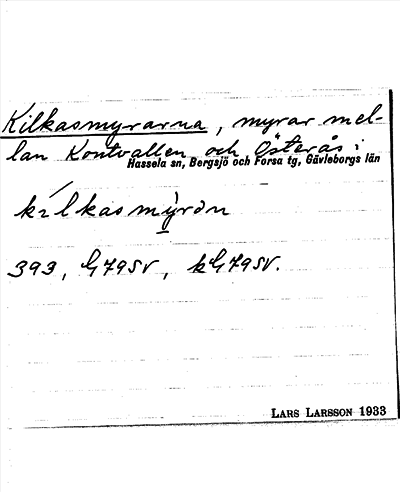 Kilkasmyrarna, myrar mel-
lan Kontvallen och Österås i
Hassela sn, Bergsjö och Forsa tg, Gävleborgs län
393, G79SV, kG79SV.
LARS LARSSON 1933